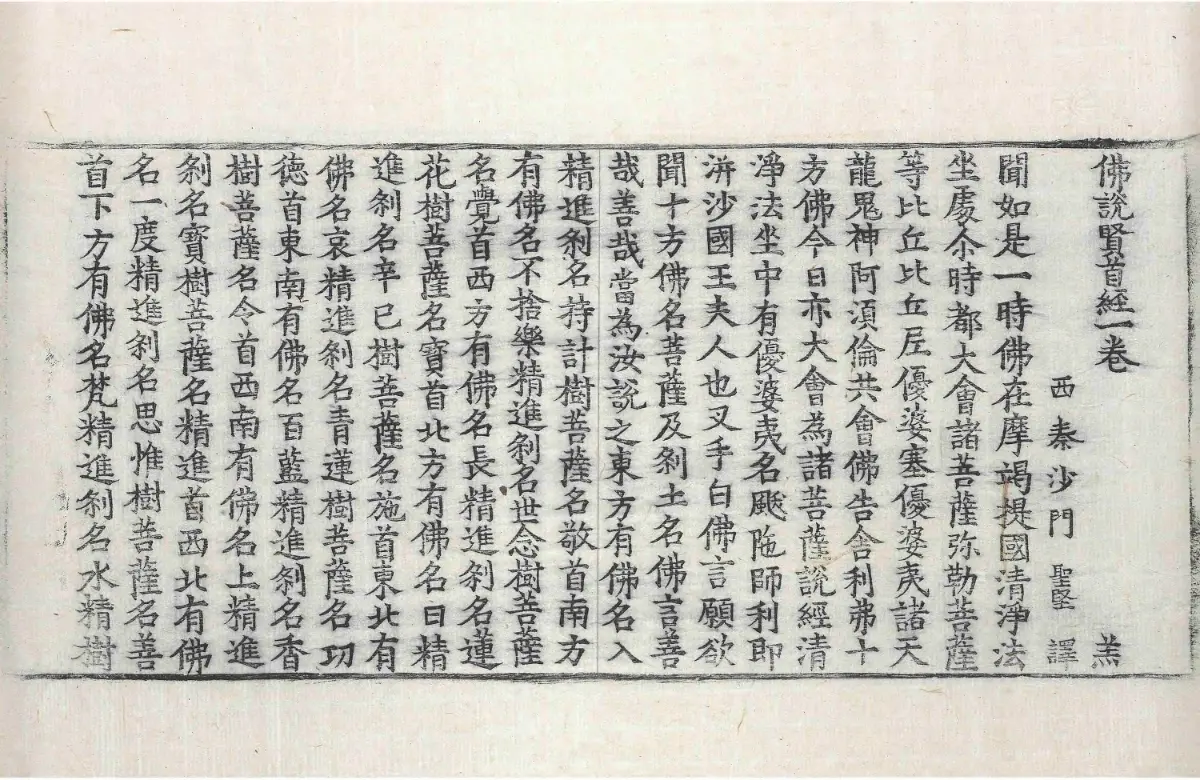 佛說賢首經一卷 羔
西秦沙門 聖堅 譯
聞如是一時佛在摩竭提國清淨法
坐處尒時都大會諸菩薩弥勒菩薩
等比丘比丘尼優婆塞優婆夷諸天
龍鬼神阿須倫共會佛告舍利弗十
方佛今日亦大會為諸菩薩說經清
淨法坐中有優婆夷名颰陁師利即
洴沙國王夫人也叉手白佛言願欲
聞十方佛名菩薩及剎土名佛言善
哉善哉當為汝說之東方有佛名入
精進剎名持計樹菩薩名敬首南方
有佛名不捨樂精進剎名世念樹菩薩
名覺首西方有佛名長精進剎名蓮
花樹菩薩名寶首北方有佛名日精
進剎名辛已樹菩薩名施首東北有
佛名哀精進剎名青蓮樹菩薩名功
德首東南有佛名百藍精進剎名香
樹菩薩名令首西南有佛名上精進
剎名寶樹菩薩名精進首西北有佛
名一度精進剎名思惟樹菩薩名善
首下方有佛名梵精進剎名水精樹